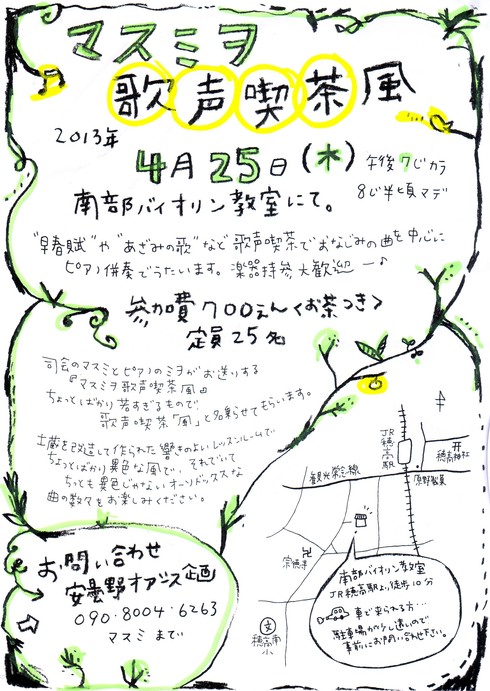 マスミヲ
歌声喫茶風
2013年
4月25日(木)
午後7じカラ
8じ半頃マデ
南部バイオリン教室にて。
"早春賦"や"あざみの歌"など歌声喫茶でおなじみの曲を中心に
ピアノ伴奏でうたいます。楽器持参大歓迎ー♪
参加費700えん<お茶つき>
定員25名
司会のマスミとピアノのミヲがお送りする
『マスミヲ歌声喫茶風』
ちょっとばかり若すぎるもので
歌声喫茶「風」と名乗らせてもらいます。
土蔵を改造して作られた響きのよいレッスンルームで
ちょっとばかり異色な風で、それでいて
ちっとも異色じゃないオーソドックスな
曲の数々をお楽しみください。
お問い合わせ
安曇野オアシス企画
090-8004-6263
マスミまで
JR穂高駅
穂高神社
観光案内線
宗徳寺
穂高南小
文
南部バイオリン教室
JR穂高駅より徒歩10分
車で来られる方…
駐車場が少し遠いので
事前にお問い合わせ下さい。